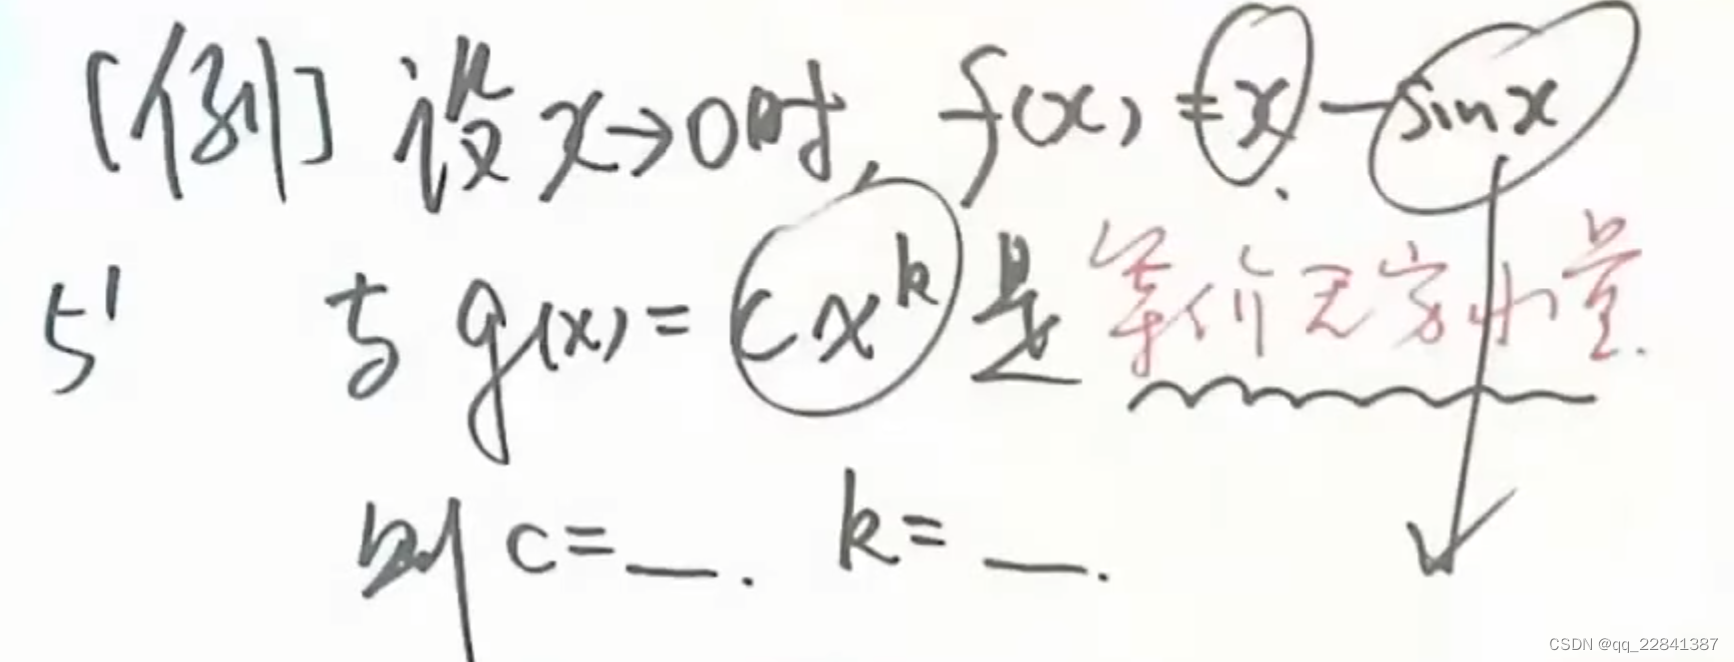 [例] 设 x→0时, f(x) = x - sinx
5' 与 g(x) = cx^k 是 等价无穷小量.
则 c = __. k = __.
CSDN @qq_22841387